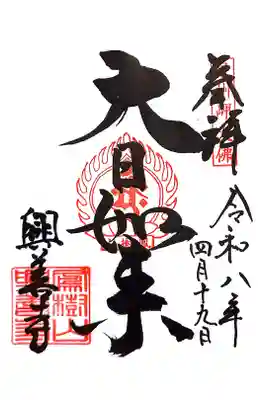 奉拝
令和八年
四月十九日
大日如来
興善寺